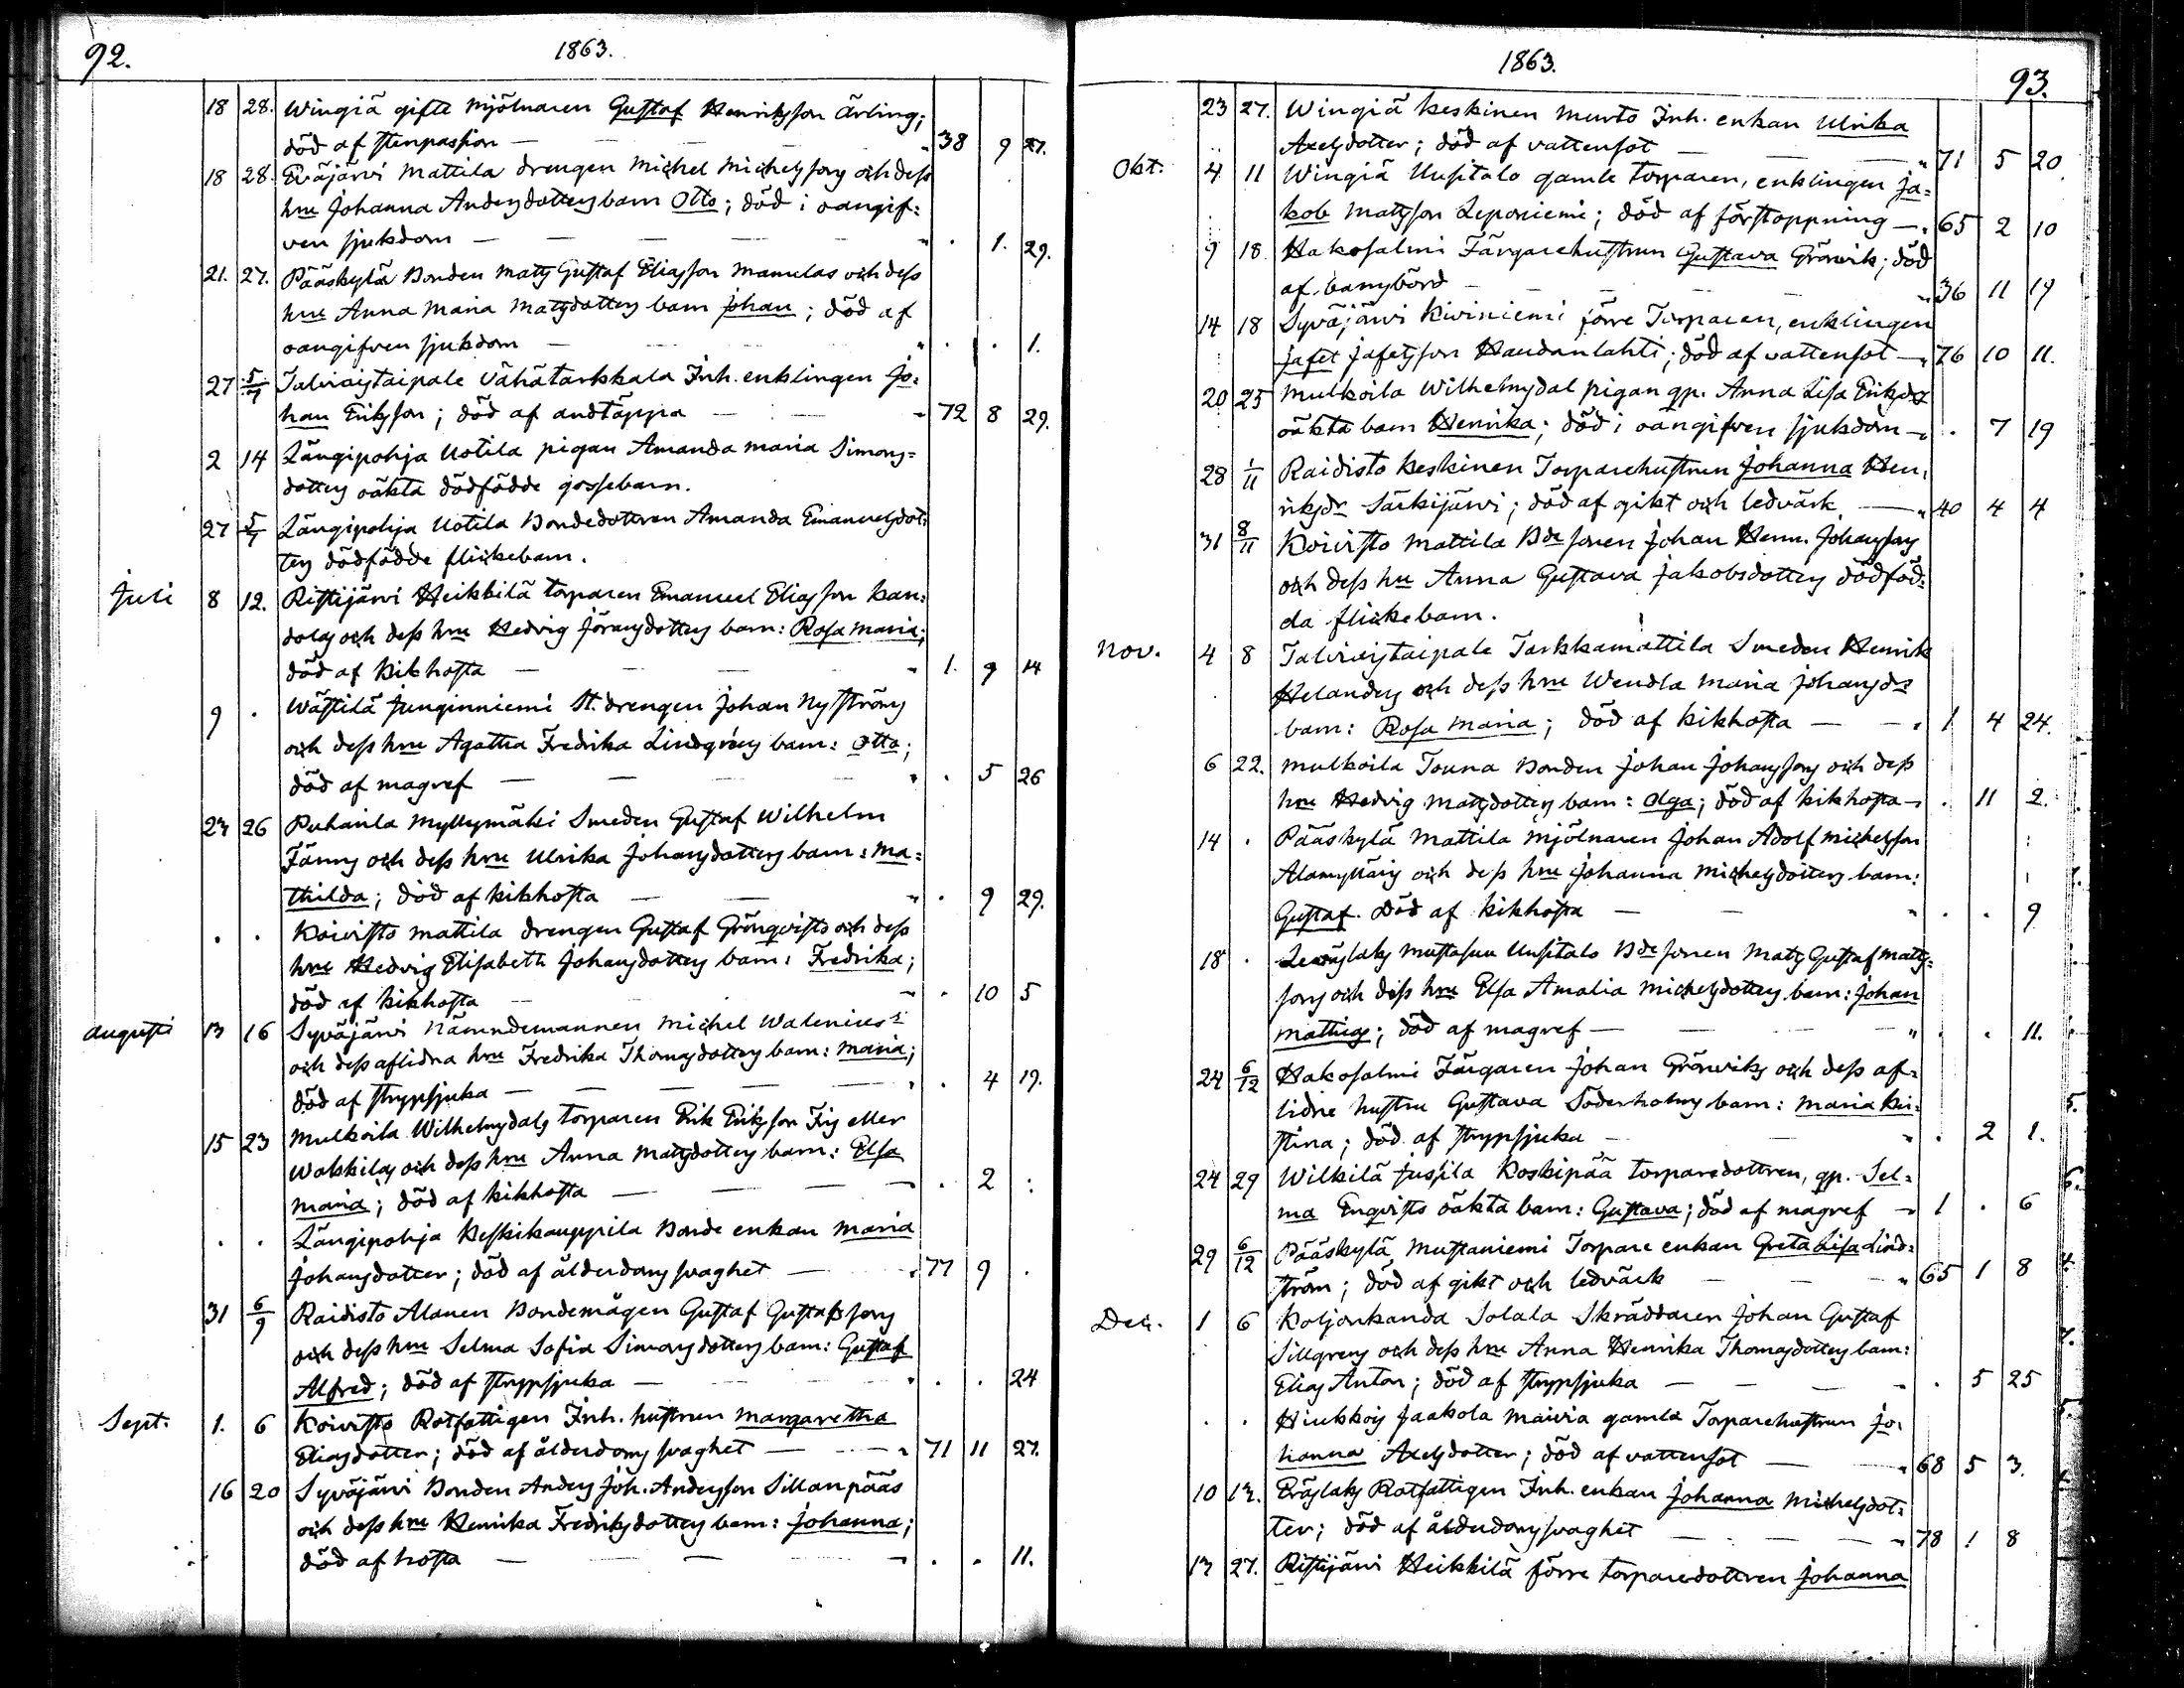 92.
1863.
18 28. Wingiä gifte Mjölnaren Gustaf Henriksson Ärling;
död af stenpassion — " 38 9 27.
18 28. Eväjärvi Mattila drengen Michel Michelssons och dess
hru Johanna Andersdotters barn Otto; död i oangif=
ven sjukdom — — — — " . 1. 29.
21. 27. Pääskylä Bonden Mats Gustaf Eliasson Mamulas och dess
hru Anna Maria Matsdotters barn Johan; död af
oangifven sjukdom — " . . 1.
27 5/7 Talviaistaipale Vähätarkkala Inh. enklingen Jo=
han Eriksson; död af andtäppa — — " 72 8 29.
2 14 Längipohja Uotila pigan Amanda Maria Simons=
dotters oäkta dödfödde gossebarn.
27 5/7 Längipohja Uotila Bondedottren Amanda Emanuelsdot=
ters dödfödde flickebarn.
Juli 8 12. Ristijärvi Heikkilä torparen Emanuel Eliasson Kan=
dolas och dess hru Hedvig Jöransdotters barn: Rosa Maria;
död af kikhosta — — " 1. 9 14
9 . Wästilä Junginniemi St. drengen Johan Nyströms
och dess hru Agatha Fredrika Lindqvists barn: Otto;
död af magref — — " . 5 26
23 26 Puhanla Myllymäki Smeden Gustaf Wilhelm
Fänns och dess hru Ulrika Johansdotters barn: Ma=
thilda; död af kikhosta — — " . 9 29.
. . Koivisto Mattila drengen Gustaf Grönqvists och dess
hru Hedvig Elisabeth Johansdotters barn: Fredrika;
död af kikhosta — " . 10 5
Augusti 13 16 Syväjärvi Nämndemannen Michel Walenius:s
och dess aflidna hru Fredrika Thomasdotters barn: Maria;
död af strypsjuka — — — — " . 4 19.
15 23 Mulkoila Wilhelmsdals torparen Erik Eriksson Fris eller
Wakkilas och dess hru Anna Matsdotters barn: Elsa
Maria; död af kikhosta — — — " . 2 :
. . Längipohja Keskikauppila Bonde enkan Maria
Johansdotter; död af ålderdomssvaghet — " 77 9 .
31 6/9 Raidisto Alanen Bondemågen Gustaf Gustafssons
och dess hru Selma Sofia Simonsdotters barn: Gustaf
Alfred; död af strypsjuka — " . . 24
Sept. 1. 6 Koivisto Rotfattigen Inh. hustrun Margaretha
Eliasdotter; död af ålderdomssvaghet — — " 71 11 27.
16 20 Syväjärvi Bonden Anders Joh. Andersson Sillanpääs
och dess hru Henrika Fredriksdotters barn: Johanna;
död af hosta — — " . . 11.
1863.
93.
23 27. Wingiä Keskinen Murto Inh. enkan Ulrika
Axelsdotter; död af vattensot — — — " 71 5 20
Okt. 4 11 Wingiä Uusitalo gamle torparen, enklingen Ja=
kob Matsson Leponiemi; död af förstoppning — " 65 2 10
9 18. Hakosalmi Färgarehustrun Gustava Grönvik; död
af barnsbörd — — — — " 36 11 19
14 18 Syväjärvi Kiviniemi förre Torparen, enklingen
Jafet Jafetsson Haudanlahti; död af vattensot — " 76 10 11.
20 25 Mulkoila Wilhelmsdal pigan qp. Anna Lisa Eriksds
oäkta barn Henrika; död i oangifven sjukdom — " . 7 19
28 1/11 Raidisto Keskinen Torparehustrun Johanna Hen=
riksdr Särkijärvi; död af gikt och ledvärk — " 40 4 4
31 8/11 Koivisto Mattila Bdesonen Johan Henr. Johanssons
och dess hru Anna Gustava Jakobsdotters dödföd=
da flickebarn.
Nov. 4 8 Talviaistaipale Tarkkamattila Smeden Henrik
Helanders och dess hru Wendla Maria Johansds
barn: Rosa Maria; död af kikhosta — — " 1 4 24.
6 22. Mulkoila Touna Bonden Johan Johanssons och dess
hru Hedvig Matsdotters barn: Olga; död af kikhosta — " . 11 2.
14 . Pääskylä Mattila Mjölnaren Johan Adolf Michelsson
Alamylläris och dess hru Johanna Michelsdotters barn:
Gustaf. Död af kikhosta — — " . . 9
18 . Mustasuu Uusitalo Bdesonen Mats Gustaf Mats=
sons och dess hru Elsa Amalia Michelsdotters barn: Johan
Mathias; död af magref — — — " . . 11.
24 6/12 Hakosalmi Färgaren Johan Grönviks och dess af=
lidne hustru Gustava Söderholms barn: Maria Kri=
stina; död af strypsjuka — — " . 2 1.
24 29 Wilkilä Jussila Koskipää torparedottren, qp. Sel=
ma Enqvists oäkta barn: Gustava; död af magref — " 1 . 6
29 6/12 Pääskylä Mustaniemi Torpare enkan Greta Lisa Lind=
ström; död af gikt och ledvärk — — " 65 1 8
Dec. 1 6 Koljonkanda Solala Skräddaren Johan Gustaf
Sillgrens och dess hru Anna Henrika Thomasdotters barn:
Elias Anton; död af strypsjuka — — — " . 5 25
. . Hiukkois Jaakola Maivia gamla Torparehustrun Jo=
hanna Axelsdotter; död af vattensot — — " 68 5 3.
10 13. Eräslaks Rotfattigen Inh. enkan Johanna Michelsdot=
ter; död af ålderdomssvaghet — — " 78 1 8
13 27. Ristijärvi Heikkilä förre torparedottren Johanna